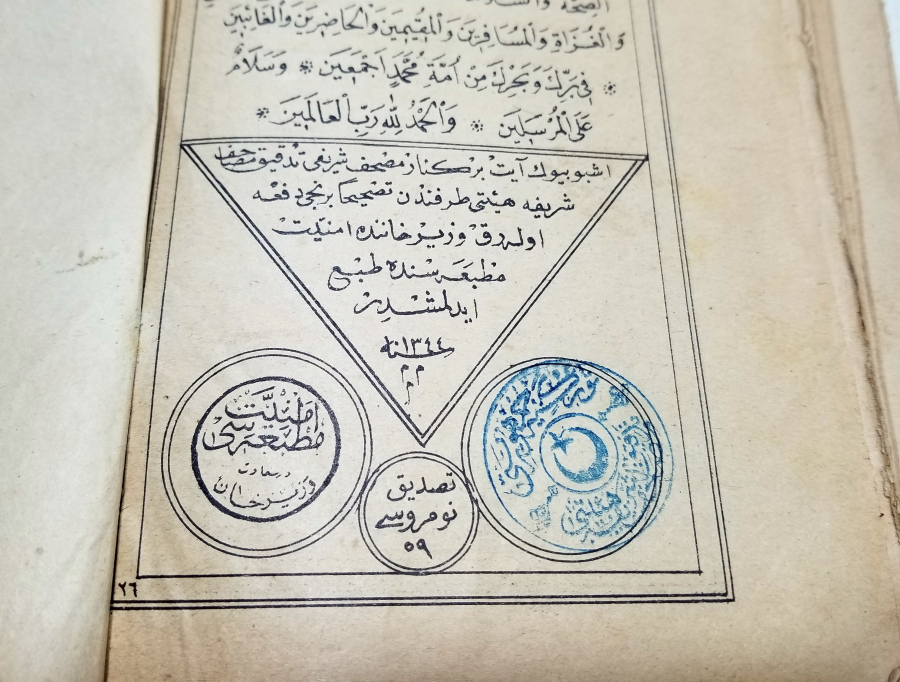 الصحة
وَالْغُزَاةِ وَالْمُسَافِرِينَ وَالْمُقِيمِينَ وَالْحَاضِرِينَ وَالْغَائِبِينَ
فِي بَرِّكَ وَبَحْرِكَ مِنْ اُمَّةِ مُحَمَّدٍ اَجْمَعِينَ * وَسَلَامٌ
عَلَى الْمُرْسَلِينَ * وَالْحَمْدُ لِلّٰهِ رَبِّ الْعَالَمِينَ *
اشبو بيوك آيت بركنار مصحف شريفى تدقيق مصاحف
شريفه هيئتى طرفندن تصحيحا برنجى دفعه
اوله رق وزير خاننده امنيّت
مطبعه سنده طبع
ايدلمشدر
سنه ١٣٤٤
م م
امنيّت
مطبعه سى
درسعادت
وزير خان
تصديق
نومروسى
٥٩
هيئتى
٢٦